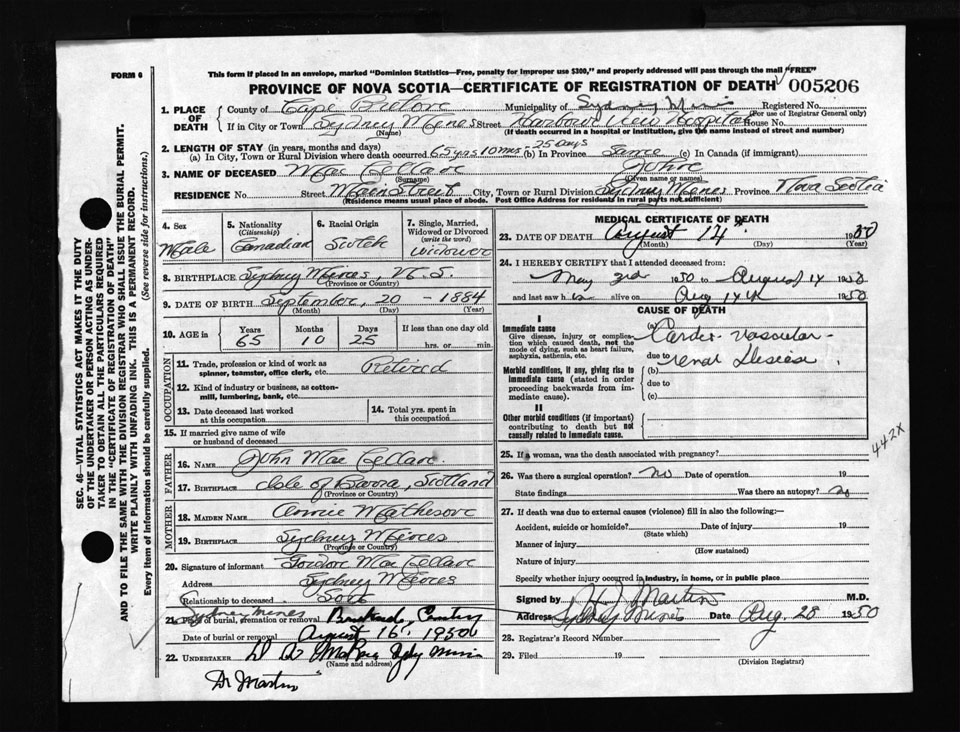 FORM 6
This form if placed in an envelope, marked "Dominion Statistics—Free, penalty for improper use $300," and properly addressed will pass through the mail "FREE"
PROVINCE OF NOVA SCOTIA—CERTIFICATE OF REGISTRATION OF DEATH 005206
SEC. 46—VITAL STATISTICS ACT MAKES IT THE DUTY
OF THE UNDERTAKER OR PERSON ACTING AS UNDER-
TAKER TO OBTAIN ALL THE PARTICULARS REQUIRED
IN THE "CERTIFICATE OF REGISTRATION OF DEATH"
AND TO FILE THE SAME WITH THE DIVISION REGISTRAR WHO SHALL ISSUE THE BURIAL PERMIT.
WRITE PLAINLY WITH UNFADING INK. THIS IS A PERMANENT RECORD.
Every item of Information should be carefully supplied. (See reverse side for instructions.)
1. PLACE OF DEATH County of Cape Breton Municipality of Sydney Mines Registered No.
(For use of Registrar General only)
If in City or Town Sydney Mines Street Harbour View Hospital House No.
(Name) (If death occurred in a hospital or institution, give the name instead of street and number)
2. LENGTH OF STAY (in years, months and days)
(a) In City, Town or Rural Division where death occurred 65 yrs 10 mos - 25 days (b) In Province Same (c) In Canada (if immigrant)
3. NAME OF DECEASED Mac Lellan John
(Surname) (Given name or names)
RESIDENCE No. Street Main Street City, Town or Rural Division Sydney Mines Province Nova Scotia
(Residence means usual place of abode. Post Office Address for residents in rural parts not sufficient)
4. Sex Male
5. Nationality (Citizenship) Canadian
6. Racial Origin Scotch
7. Single, Married, Widowed or Divorced (write the word) Widower
8. BIRTHPLACE Sydney Mines, N.S.
(Province or Country)
9. DATE OF BIRTH September, 20 - 1884
(Month) (Day) (Year)
10. AGE in Years 65 Months 10 Days 25 If less than one day old hrs. or min.
OCCUPATION
11. Trade, profession or kind of work as spinner, teamster, office clerk, etc. Retired
12. Kind of industry or business, as cotton-mill, lumbering, bank, etc.
13. Date deceased last worked at this occupation
14. Total yrs. spent in this occupation
15. If married give name of wife or husband of deceased
FATHER
16. NAME John Mac Lellan
17. BIRTHPLACE Isle of Barra, Scotland
(Province or Country)
MOTHER
18. MAIDEN NAME Annie Matheson
19. BIRTHPLACE Sydney Mines
(Province or Country)
20. Signature of informant Gordon Mac Lellan
Address Sydney Mines
Relationship to deceased Son
Sydney Mines
21. Place of burial, cremation or removal
Date of burial or removal August 16, 1950
22. UNDERTAKER
(Name and address)
Dr Martin
MEDICAL CERTIFICATE OF DEATH
23. DATE OF DEATH August 14th 1950
(Month) (Day) (Year)
24. I HEREBY CERTIFY that I attended deceased from:
May 1950 to August 14 1950
and last saw h alive on Aug 14th 1950
CAUSE OF DEATH
I
Immediate cause
Give disease, injury or complication which caused death, not the mode of dying, such as heart failure, asphyxia, asthenia, etc.
(a) Cardio-Vascular-
due to renal Disease
Morbid conditions, if any, giving rise to immediate cause (stated in order proceeding backwards from immediate cause).
(b)
due to
(c)
II
Other morbid conditions (if important) contributing to death but not causally related to immediate cause.
442X
25. If a woman, was the death associated with pregnancy?
26. Was there a surgical operation? no Date of operation 19
State findings Was there an autopsy? no
27. If death was due to external causes (violence) fill in also the following:—
Accident, suicide or homicide? Date of injury 19
(State which)
Manner of injury
(How sustained)
Nature of injury
Specify whether injury occurred in industry, in home, or in public place
Signed by Martin M.D.
Address Syd Mines Date Aug. 28 1950
28. Registrar's Record Number
29. Filed 19
(Division Registrar)